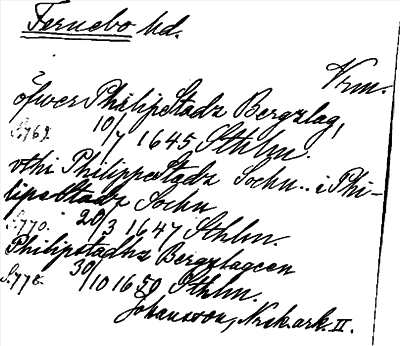 Fernebo hd.
Vrm.
öfwer Philipstadz Bergzlag,
S.769. 10/7 1645 Sthlm.
vthi Philippestadz Sochn.. i Phi-
lipsstadz Sochn
S.770. 20/3 1647 Sthlm.
Philipstadhz Bergzlageen
S.778. 30/10 1650 Sthlm.
Johansson, Nrsk.ark. II.